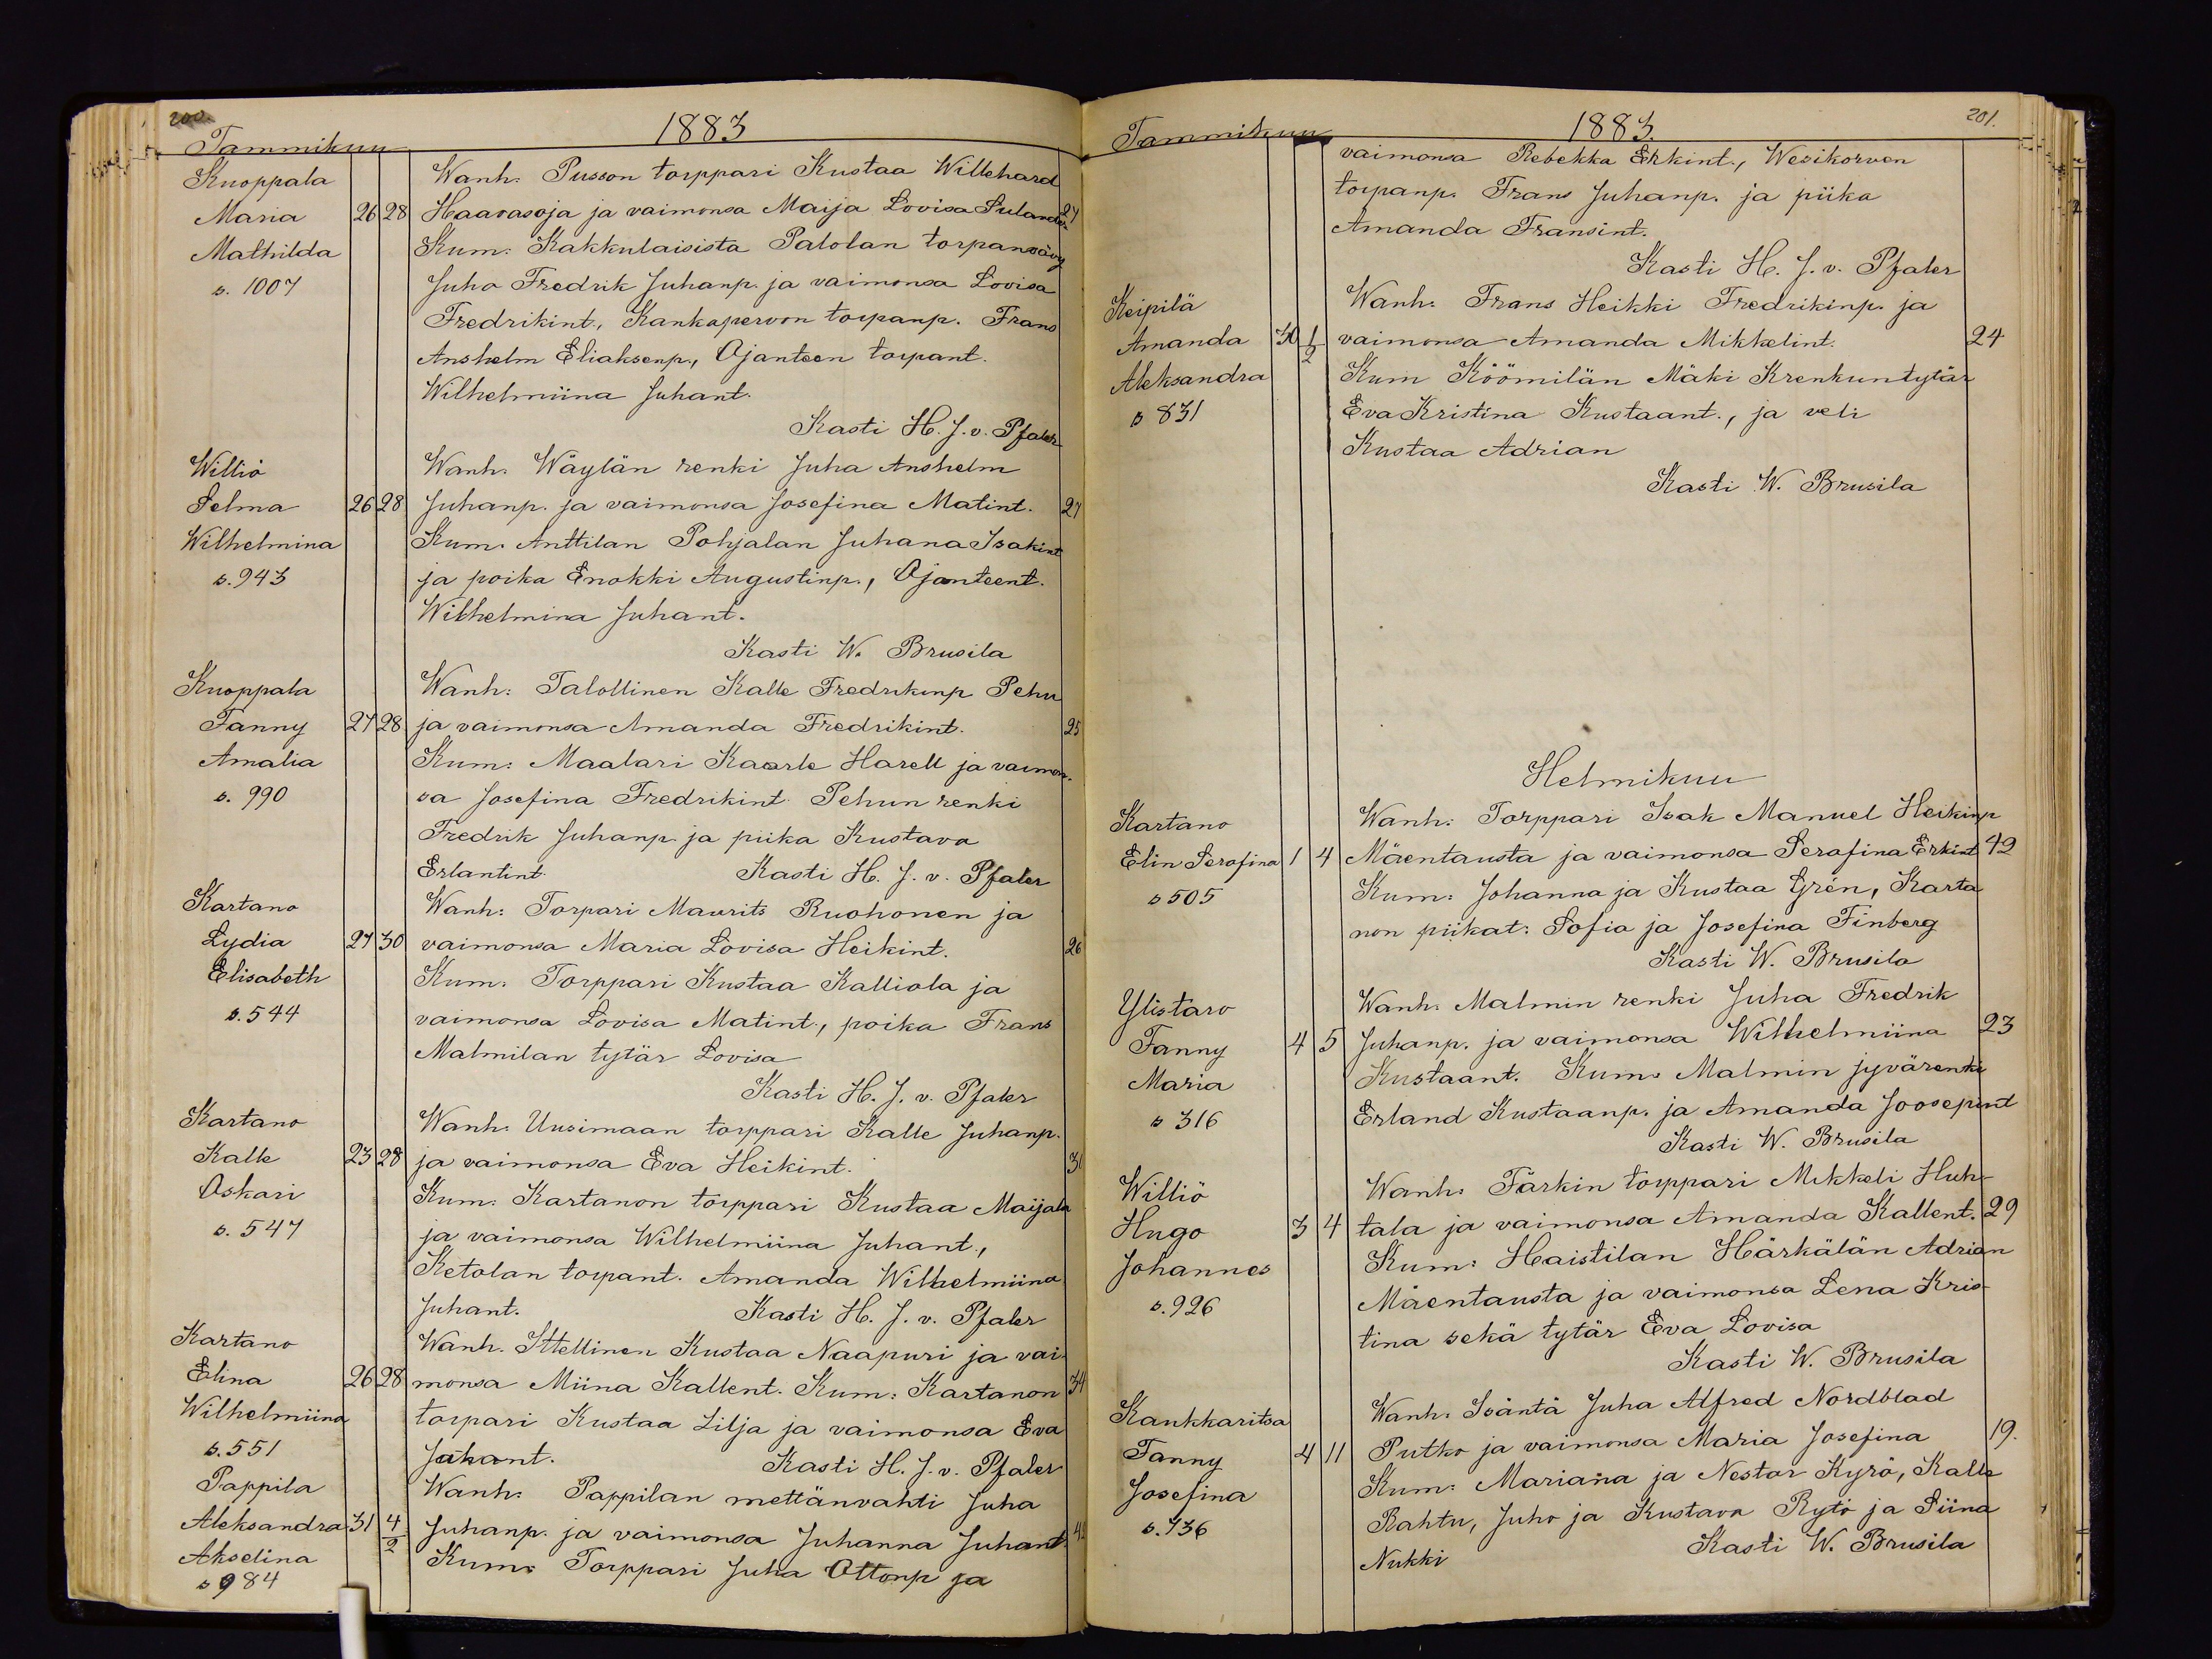 200.
Tammikuu 1883
Kuoppala Wanh: Pusson torppari Kustaa Willehard
Maria 26 28 Haavasoja ja vaimonsa Maija Lovisa Sulander 27
Mathilda Kum: Kakkulaisista Palolan torpanvävy
s. 1007 Juho Fredrik Juhanp. ja vaimonsa Lovisa
Fredrikint., Kankaperon torpanp. Frans
Anshelm Eliaksenp., Ojanteen torpant.
Wilhelmiina Juhant.
Kasti H. J. v. Pfaler
Williö Wanh: Wäylän renki Juha Anshelm
Selma 26 28 Juhanp. ja vaimonsa Josefina Matint. 27
Wilhelmina Kum: Anttilan Pohjalan Juhana Isakint
s. 943 ja poika Enokki Augustinp., Ojanteent.
Wilhelmina Juhant.
Kasti W. Brusila
Kuoppala Wanh: Talollinen Kalle Fredrikinp Pehu
Fanny 27 28 ja vaimonsa Amanda Fredrikint. 25
Amalia Kum: Maalari Kaarle Harell ja vaimon-
s. 990 sa Josefina Fredrikint. Pehun renki
Fredrik Juhanp ja piika Kustava
Erlantint. Kasti H. J. v. Pfaler
Kartano Wanh: Torpari Maurits Ruohonen ja
Lydia 27 30 vaimonsa Maria Lovisa Heikint. 26
Elisabeth Kum: Torppari Kustaa Kalliola ja
s. 544 vaimonsa Lovisa Matint., poika Frans
Malmilan tytär Lovisa
Kasti H. J. v. Pfaler
Kartano Wanh: Uusimaan torppari Kalle Juhanp.
Kalle 23 28 ja vaimonsa Eva Heikint. 31
Oskari Kum: Kartanon torppari Kustaa Maijala
s. 547 ja vaimonsa Wilhelmiina Juhant.,
Ketolan torpant. Amanda Wilhelmiina
Juhant. Kasti H. J. v. Pfaler
Kartano Wanh. Ittellinen Kustaa Naapuri ja vai-
Elina 26 28 monsa Miina Kallent. Kum: Kartanon 34
Wilhelmiina torpari Kustaa Lilja ja vaimonsa Eva
s. 551 Juhant. Kasti H. J. v. Pfaler
Pappila Wanh: Pappilan mettänvahti Juha
Aleksandra 31 4/2 Juhanp. ja vaimonsa Juhanna Juhant.
Akselina Kum: Torppari Juha Ottonp ja
s 984
201.
Tammikuu 1883.
vaimonsa Rebekka Erkint., Wesikorven
torpanp. Frans Juhanp. ja piika
Amanda Fransint.
Kasti H. J. v. Pfaler
Keipilä Wanh: Frans Heikki Fredrikinp. ja
Amanda 30 1/2 vaimonsa Amanda Mikkelint. 24
Aleksandra Kum Köömilän Mäki Krenkun tytär
s 831 Eva Kristina Kustaant., ja veli
Kustaa Adrian
Kasti W. Brusila
Helmikuu
Kartano Wanh: Torppari Isak Manuel Heikinp
Elin Serafina 1 4 Mäentausta ja vaimonsa Serafina Erkint 42
s 505 Kum: Johanna ja Kustaa Grén, Karta
non piikat: Sofia ja Josefina Finberg
Kasti W. Brusila
Ylistaro Wanh: Malmin renki Juha Fredrik
Fanny 4 5 Juhanp. ja vaimonsa Wilhelmiina 23
Maria Kustaant. Kum: Malmin jyvärenki
s 316 Erland Kustaanp. ja Amanda Joosepint
Kasti W. Brusila
Williö Wanh: Färkin torppari Mikkeli Huh-
Hugo 3 4 tala ja vaimonsa Amanda Kallent. 29
Johannes Kum: Haistilan Härkälän Adrian
s. 926 Mäentausta ja vaimonsa Lena Kris-
tina sekä tytär Eva Lovisa
Kasti W. Brusila
Kankkaritsa Wanh: Isäntä Juha Alfred Nordblad
Fanny 4 11 Putko ja vaimonsa Maria Josefina 19.
Josefina Kum: Mariana ja Nestor Kyrö, Kalle
s. 736 Rahtu, Juho ja Kustava Rytö ja Siina
Nukki Kasti W. Brusila